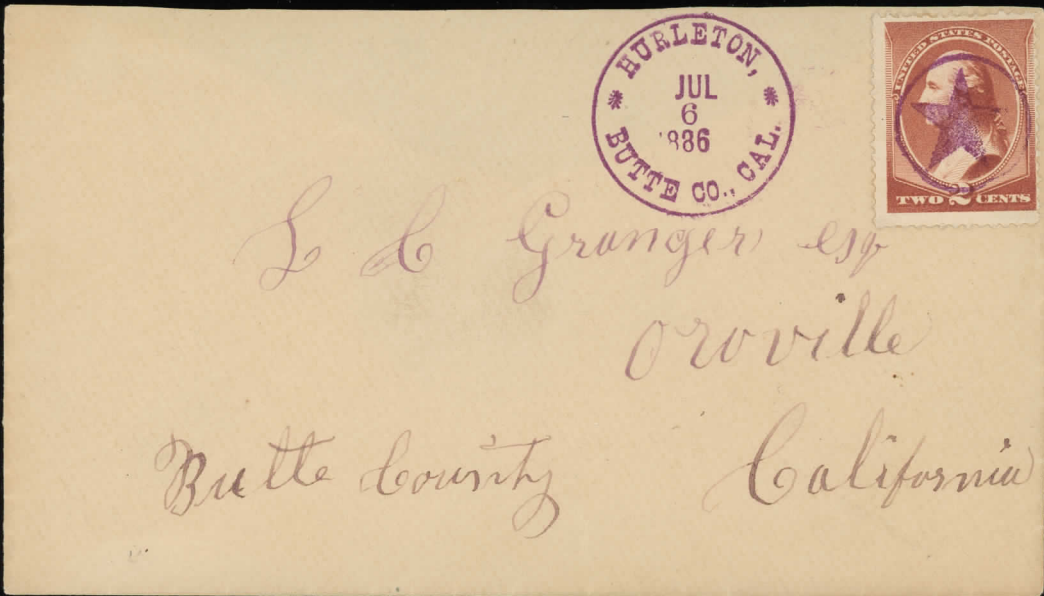 HURLETON,
JUL
6
1886
BUTTE CO., CAL.
UNITED STATES POSTAGE
TWO 2 CENTS
L C Granger esq
Oroville
Butte County California